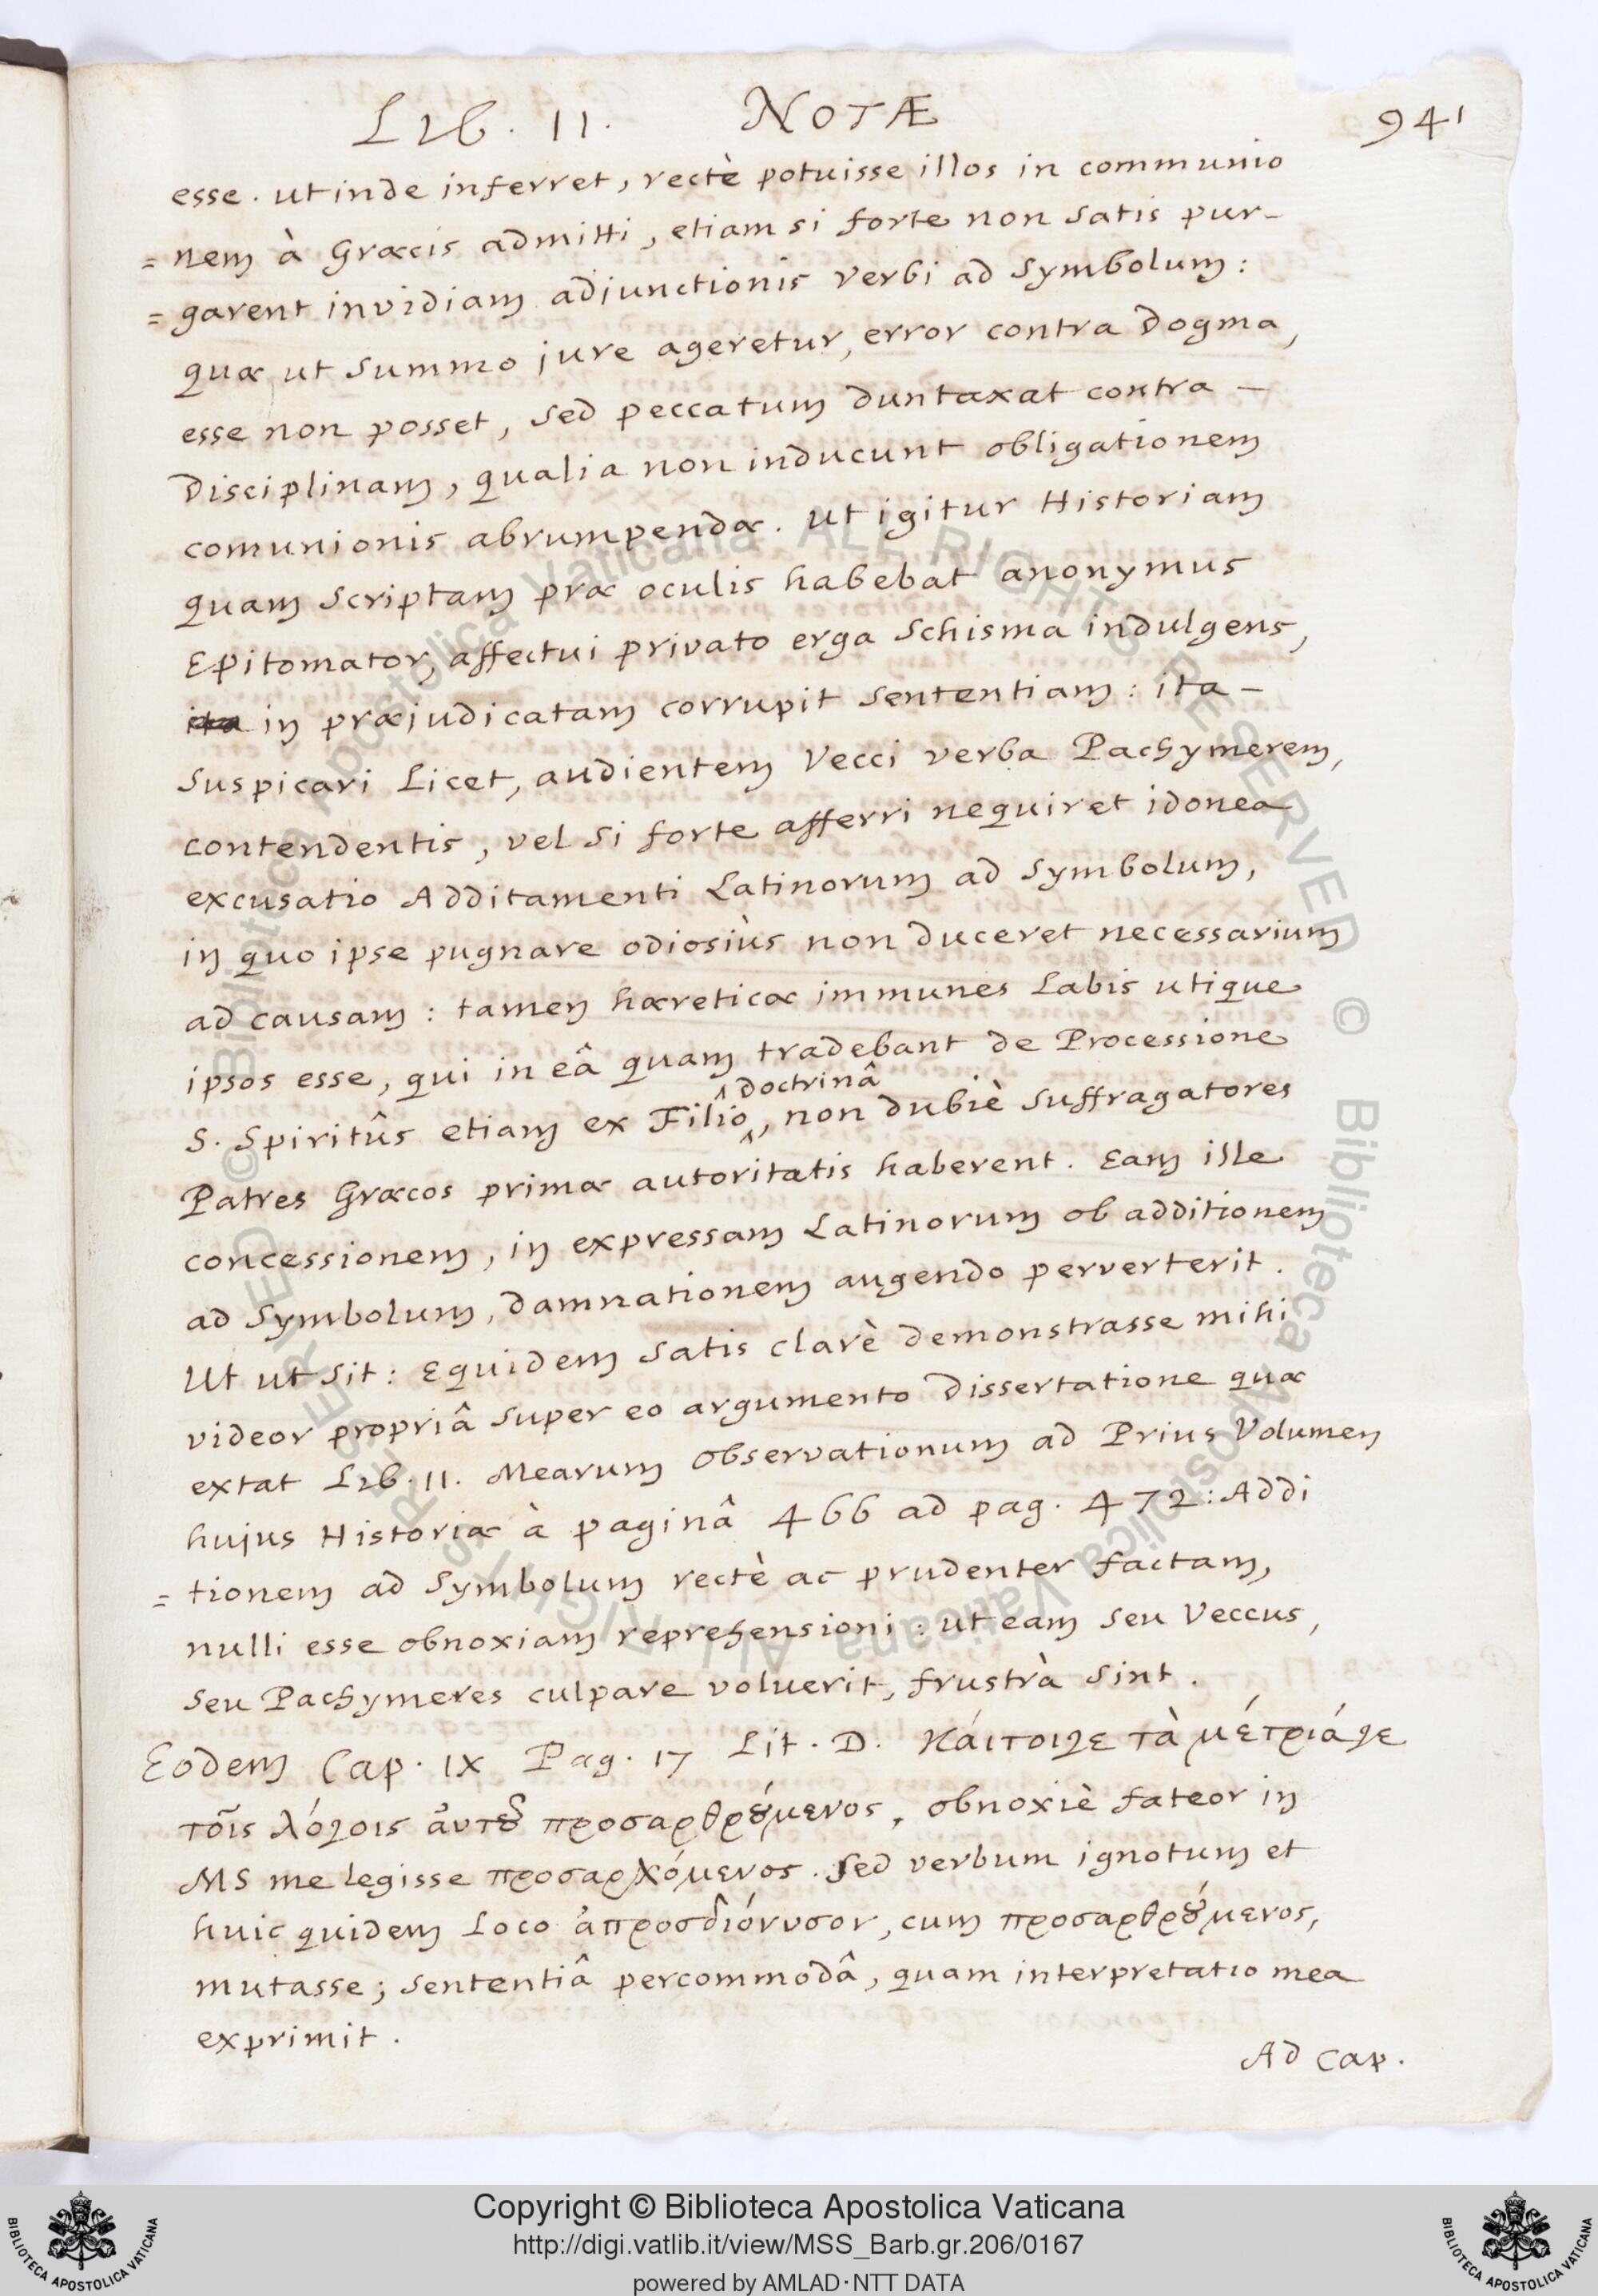 Lib. II. NOTÆ 941
esse. ut inde inferret, rectè potuisse illos in communio
= nem à Græcis admitti, etiam si forte non satis pur-
= garent invidiam adjunctionis verbi ad Symbolum:
quæ ut summo jure ageretur, error contra Dogma,
esse non posset, sed peccatum duntaxat contra –
Disciplinam, qualia non inducunt obligationem
comunionis abrumpendæ. Ut igitur Historiam
quam scriptam præ oculis habebat anonymus
Epitomator, affectui privato erga Schisma indulgens,
ita in præjudicatam corrupit sententiam: ita –
suspicari Licet, audientem Vecci verba Pachymerem,
contendentis, vel si forte afferri nequiret idonea
excusatio Additamenti Latinorum ad Symbolum,
in quo ipse pugnare odiosiùs non duceret necessarium
ad causam: tamen hæreticæ immunes Labis utique
ipsos esse, qui in eâ quam tradebant de Processione
^ doctrinâ
S. Spiritûs etiam ex Filio ^, non dubiè suffragatores
Patres Græcos primæ autoritatis haberent. Eam ille
concessionem, in expressam Latinorum ob additionem
ad Symbolum, damnationem augendo perverterit.
Ut ut sit: Equidem satis clarè demonstrasse mihi
videor propriâ super eo argumento Dissertatione quæ
extat Lib. II. Mearum Observationum ad Prius Volumen
hujus Historiæ à paginâ 466 ad pag. 472: Addi
= tionem ad Symbolum rectè ac prudenter factam,
nulli esse obnoxiam reprehensioni: ut eam seu Veccus,
seu Pachymeres culpare voluerit, frustrà sint.
Eodem Cap. IX Pag. 17 Lit. D. Κάιτοιγε τὰ μέτριάγε
τοῖς λόγοις ἀυτȣ͂ προσαρθρȣ́μενος, obnoxiè fateor in
MS me legisse προσαρχόμενος. Sed verbum ignotum et
huic quidem Loco ἀπροσδιόνυσον, cum προσαρθρȣ́μενος,
mutasse; sententiâ percommodâ, quam interpretatio mea
exprimit.
Ad Cap.
© Biblioteca Apostolica Vaticana ALL RIGHTS RESERVED © Biblioteca Apostolica Vaticana ALL RIGHTS RESERVED
Copyright © Biblioteca Apostolica Vaticana
http://digi.vatlib.it/view/MSS_Barb.gr.206/0167
powered by AMLAD·NTT DATA
BIBLIOTECA APOSTOLICA VATICANA
BIBLIOTECA APOSTOLICA VATICANA